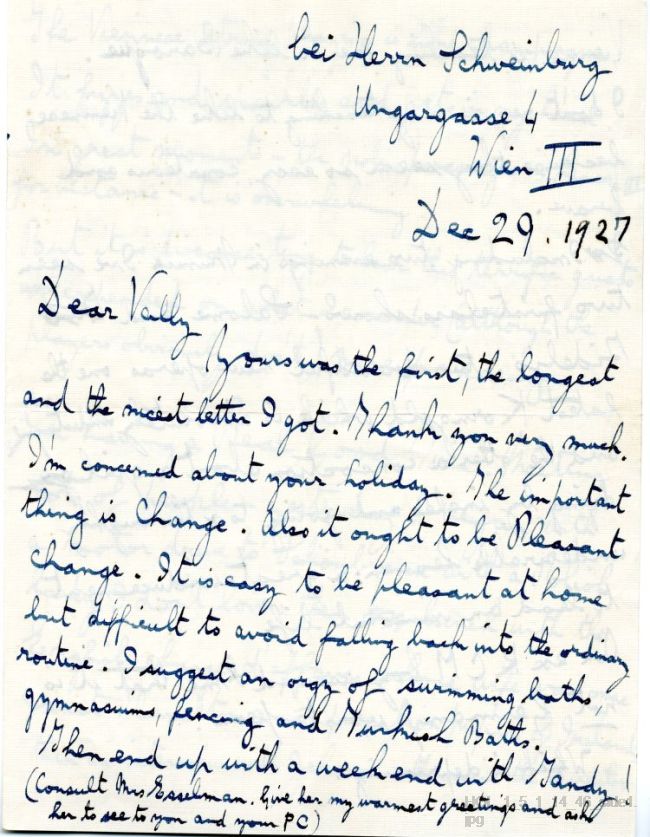 bei Herrn Schweinburg
Ungargasse 4
Wien III
Dec 29. 1927
Dear Vally
Yours was the first, the longest
and the nicest letter I got. Thank you very much.
I'm concerned about your holiday. The important
thing is Change. Also it ought to be Pleasant
Change. It is easy to be pleasant at home
but difficult to avoid falling back into the ordinary
routine. I suggest an orgy of swimming baths,
gymnasiums, fencing and Turkish Baths.
Then end up with a weekend with Tandy!
(Consult Mrs Esselman. Give her my warmest greetings and ask
her to see to you and your PC)